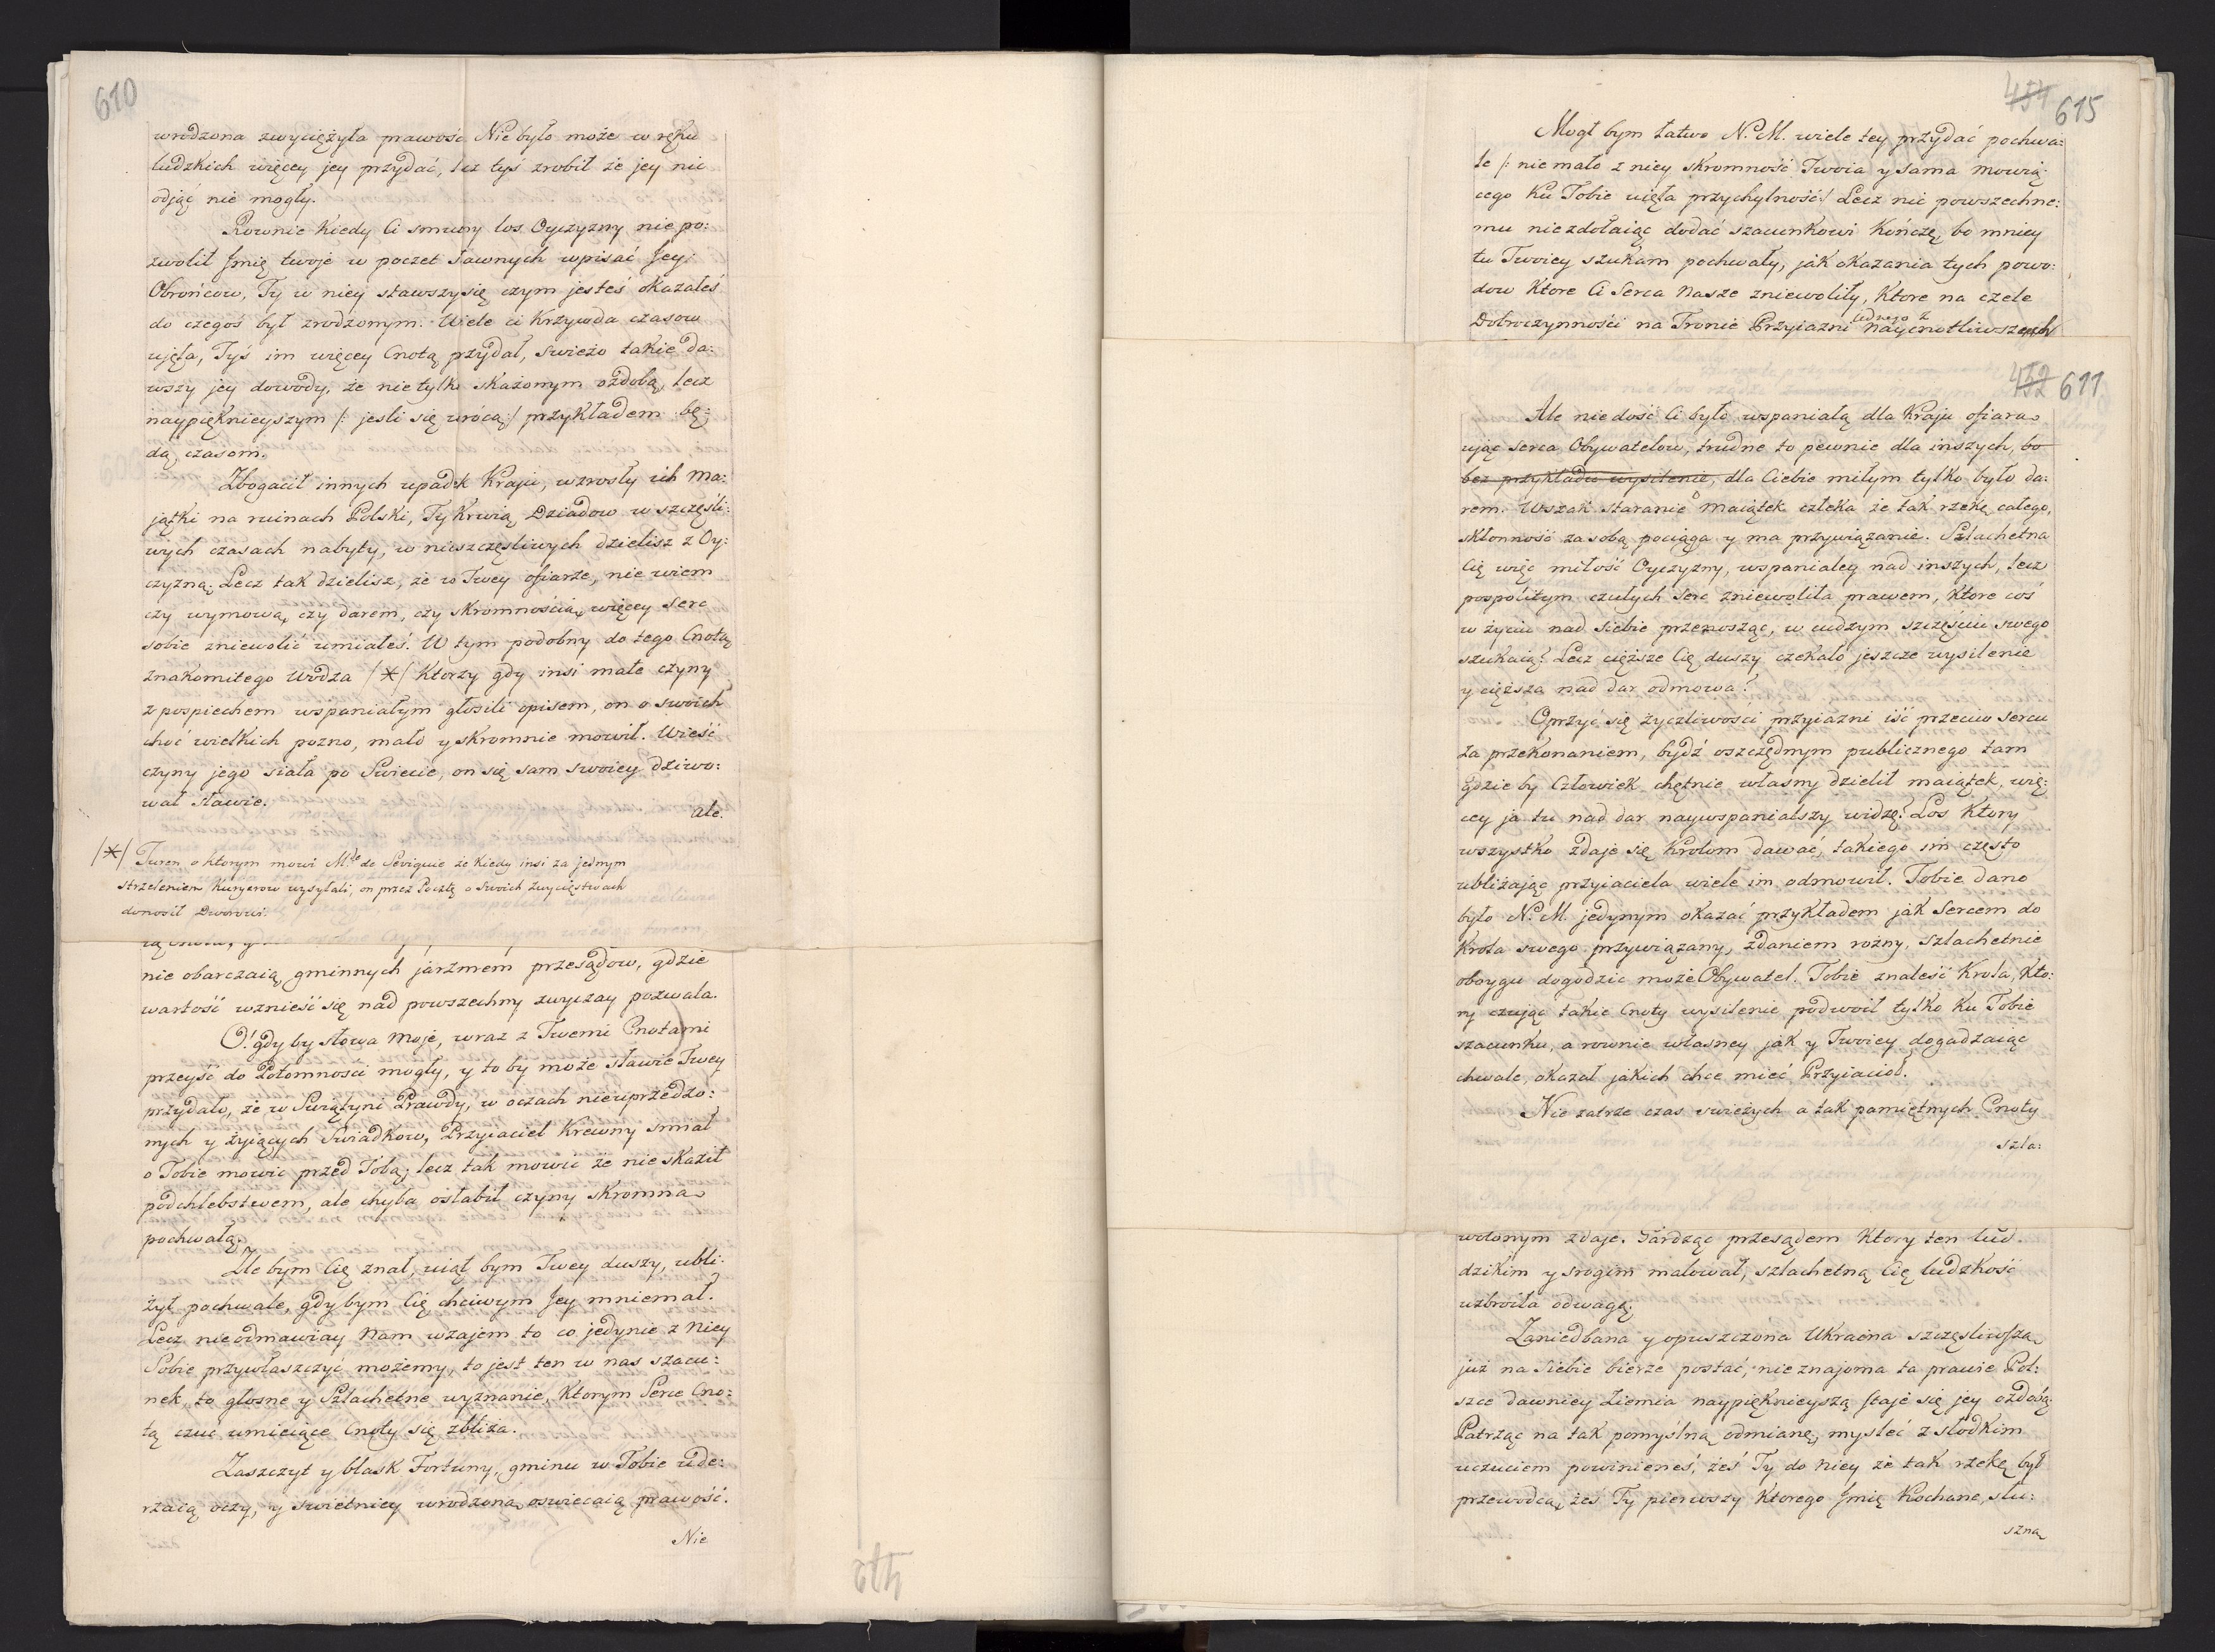 610
wrodzona zwyciężyła prawość Nie było może w ręku
ludzkich więcey jey przydać, lecz tyś zrobił że jey nic
odjąć nie mogły.
Rownie kiedy Ci smutny los Oyczyzny nie po:
zwolił Jmię twoje w poczet sławnych wpisać Jey
Obrońcow, Ty w niey stawszy się czym jesteś okazałeś
do czegoś był zrodzonym. Wiele ci Krzywda czasow
ujęła, Tyś im więcey Cnotą przydał, swieżo takie da:
wszy jey dowody, że nie tylko skażonym ozdobą, lecz
naypięknieyszym /: jesli się wrócą :/ przykładem bę:
dą czasom.
Zbogacił innych upadek Kraju, wzrosły ich Ma:
jątki na ruinach Polski, Ty krwią Dziadow w szczęśli:
wych czasach nabyty, w nieszczęsliwych dzielisz z Oy:
czyzną. Lecz tak dzielisz, że w Twey ofiarze, nie wiem
czy wymową, czy darem, czy skromnością, więcey serc
sobie zniewolić umiałeś. W tym podobny do tego Cnotą
znakomitego Wodza /*/ Ktorzy gdy insi małe czyny
z pospiechem wspaniałym głosili opisem, on o swoich
choć wielkich pozno, mało y skromnie mowił. Wieść
czyny jego siała po Swiecie, on się sam swoiey dziwo:
wał sławie.
ale.
/*/ Turen o ktorym mowi M.de de Sevignie że kiedy insi za jednym
strzeleniem Kuryerow wysyłali, on przez Pocztę o swoich zwycięstwach
donosił Dworowi.
nie obarczaią gminnych jarzmem przesądow, gdzie
wartość wznieść się nad powszechny zwyczay pozwala.
O! gdy by słowa moje, wraz z Twemi Cnotami
przeyść do Potomnosci mogły, y to by może sławie Twey
przydało, że w Swiątyni Prawdy, w oczach nieuprzedzo:
nych y żyiących Swiadkow, Przyiaciel Krewny smiał
o Tobie mowic przed Tobą; lecz tak mowić że nie skaził
podchlebstwem, ale chyba osłabił czyny skromna
pochwałą.
Zle bym Cię znał, uiął bym Twey duszy, ubli:
żył pochwale, gdybym Cię chciwym Jey mniemał.
Lecz nie odmawiay Nam wzajem to co jedynie z Niey
Sobie przywłaszczyć możemy, to jest ten w nas szacu:
nek, to głosne y Szlachetne wyznanie, Ktorym Serce Cno:
tą czuc umieiące Cnoty się zbliża.
Zaszczyt y blask Fortuny, gminu w Tobie ude:
rzaią oczy, y swietniey wrodzona oswiecaią prawość.
Nie
412
454 615
Mogł bym łatwo N. M. wiele tey przydać pochwa:
le /: nie mało z niey skromność Twoia y sama mowią:
cego Ku Tobie uięła przychylność:/ Lecz nic powszechne:
mu niezdołaiąc dodać szacunkowi Kończę, bo mniey
tu Twoiey szukam pochwały, jak okazania tych powo:
dow Ktore Ci Serca Nasze zniewoliły, Ktore na czele
Dobroczynności na Tronie Przyiazni iednego z naycnotliwszych
452 611
Ale nie dość Ci było wspaniałą dla Kraju ofiara
ująć serca Obywatelow, trudne to pewnie dla inszych, bo
bez przykładu wysilenie, dla Ciebie miłym tylko było da:
rem. Wszak staranie o maiątek człeka że tak rzekę całego,
skłonność za sobą pociąga y ma przywiązanie. Szlachetna
Cię więc miłość Oyczyzny, wspaniałey nad inszych, lecz
pospolitym czułych Serc zniewoliła prawem, Ktore coś
w życiu nad siebie przenosząc, w cudzym szczęściu swego
szukaią? Lecz cięższe Cię duszy czekało jeszcze wysilenie
y cięższa nad dar odmowa?
Oprzyć się życzliwosci przyiazni iść przeciw sercu
za przekonaniem, bydź oszczędnym publicznego tam
gdzie by Człowiek chętnie własny dzielił maiątek, wię:
cey ja tu nad dar naywspanialszy widzę? Los Ktory
wszystko zdaje się Krolom dawać, takiego im często
ubliżając przyiaciela wiele im odmowił. Tobie dano
było N. M. jedynym okazać przykładem jak Sercem do
Krola swego przywiązany, zdaniem rozny, szlachetnie
oboygu dogodzic może Obywatel. Tobie znaleść Krola, kto:
ry czując takie Cnoty wysilenie podwoił tylko ku Tobie
szacunku, a rownie własney jak y Twoiey dogadzaiąc
chwale, okazał jakich chce mieć Przyiacioł.
Nie zatrze czas swieżych a tak pamiętnych Cnoty
szla:
wolonym zdaje. Gardząc przesądem Ktory ten lud
dzikim y srogim malował, szlachetną Cię ludzkość
uzbroiła odwagą.
Zaniedbana y opuszczona Ukraina szczęsliwszą
już na siebie bierze postać, nie znajoma ta prawie Pol:
szce dawniey Ziemia naypięknieyszą staje się jey ozdobą.
Patrząc na tak pomyślną odmianę, mysleć z słodkim
uczuciem powinieneś, żeś Ty do Niey że tak rzekę był
przewodcą, żeś Ty pierwszy Ktorego Jmię Kochane, słu:
szną